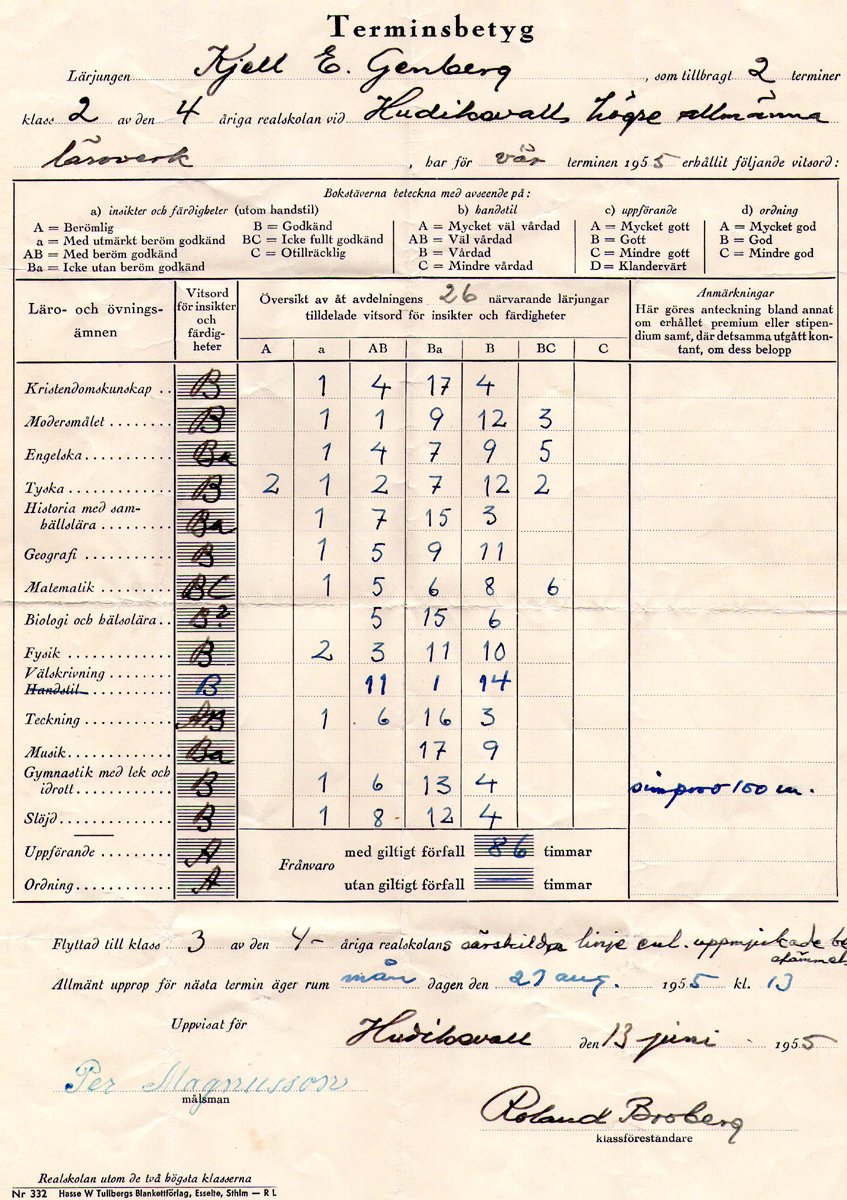 Terminsbetyg
Lärjungen Kjell E. Genberg, som tillbragt 2 terminer
klass 2 av den 4 åriga realskolan vid Hudiksvalls högre allmänna
läroverk, har för vår terminen 1955 erhållit följande vitsord:
Bokstäverna beteckna med avseende på:
a) insikter och färdigheter (utom handstil) b) handstil c) uppförande d) ordning
A = Berömlig B = Godkänd A = Mycket väl vårdad A = Mycket gott A = Mycket god
a = Med utmärkt beröm godkänd BC = Icke fullt godkänd AB = Väl vårdad B = Gott B = God
AB = Med beröm godkänd C = Otillräcklig B = Vårdad C = Mindre gott C = Mindre god
Ba = Icke utan beröm godkänd C = Mindre vårdad D = Klandervärt
Läro- och övnings-
ämnen
Vitsord
för insikter
och
färdig-
heter
Översikt av åt avdelningens 26 närvarande lärjungar
tilldelade vitsord för insikter och färdigheter
A a AB Ba B BC C
Anmärkningar
Här göres anteckning bland annat
om erhållet premium eller stipen-
dium samt, där detsamma utgått kon-
tant, om dess belopp
Kristendomskunskap .. B 1 4 17 4
Modersmålet ........ B 1 1 9 12 3
Engelska ........... Ba 1 4 7 9 5
Tyska .............. B 2 1 2 7 12 2
Historia med sam-
hällslära ........ Ba 1 7 15 3
Geografi ........... B 1 5 9 11
Matematik .......... BC 1 5 6 8 6
Biologi och hälsolära .. B? 5 15 6
Fysik .............. B 2 3 11 10
Välskrivning
Handstil B 11 1 14
Teckning ........... AB 1 6 16 3
Musik .............. Ba 17 9
Gymnastik med lek och
idrott ........... B 1 6 13 4 simprov 100 m.
Slöjd .............. B 1 8 12 4
Uppförande ......... A Frånvaro med giltigt förfall 86 timmar
Ordning ............ A utan giltigt förfall timmar
Flyttad till klass 3 av den 4- åriga realskolans särskilda linje enl. uppmjukade be
stämmels
Allmänt upprop för nästa termin äger rum mån dagen den 29 aug. 1955 kl. 13
Uppvisat för Hudiksvall den 13 juni 1955
Per Magnusson
målsman
Roland Broberg
klassföreståndare
Realskolan utom de två högsta klasserna
Nr 332 Hasse W Tullbergs Blankettförlag, Esselte, Sthlm — R L